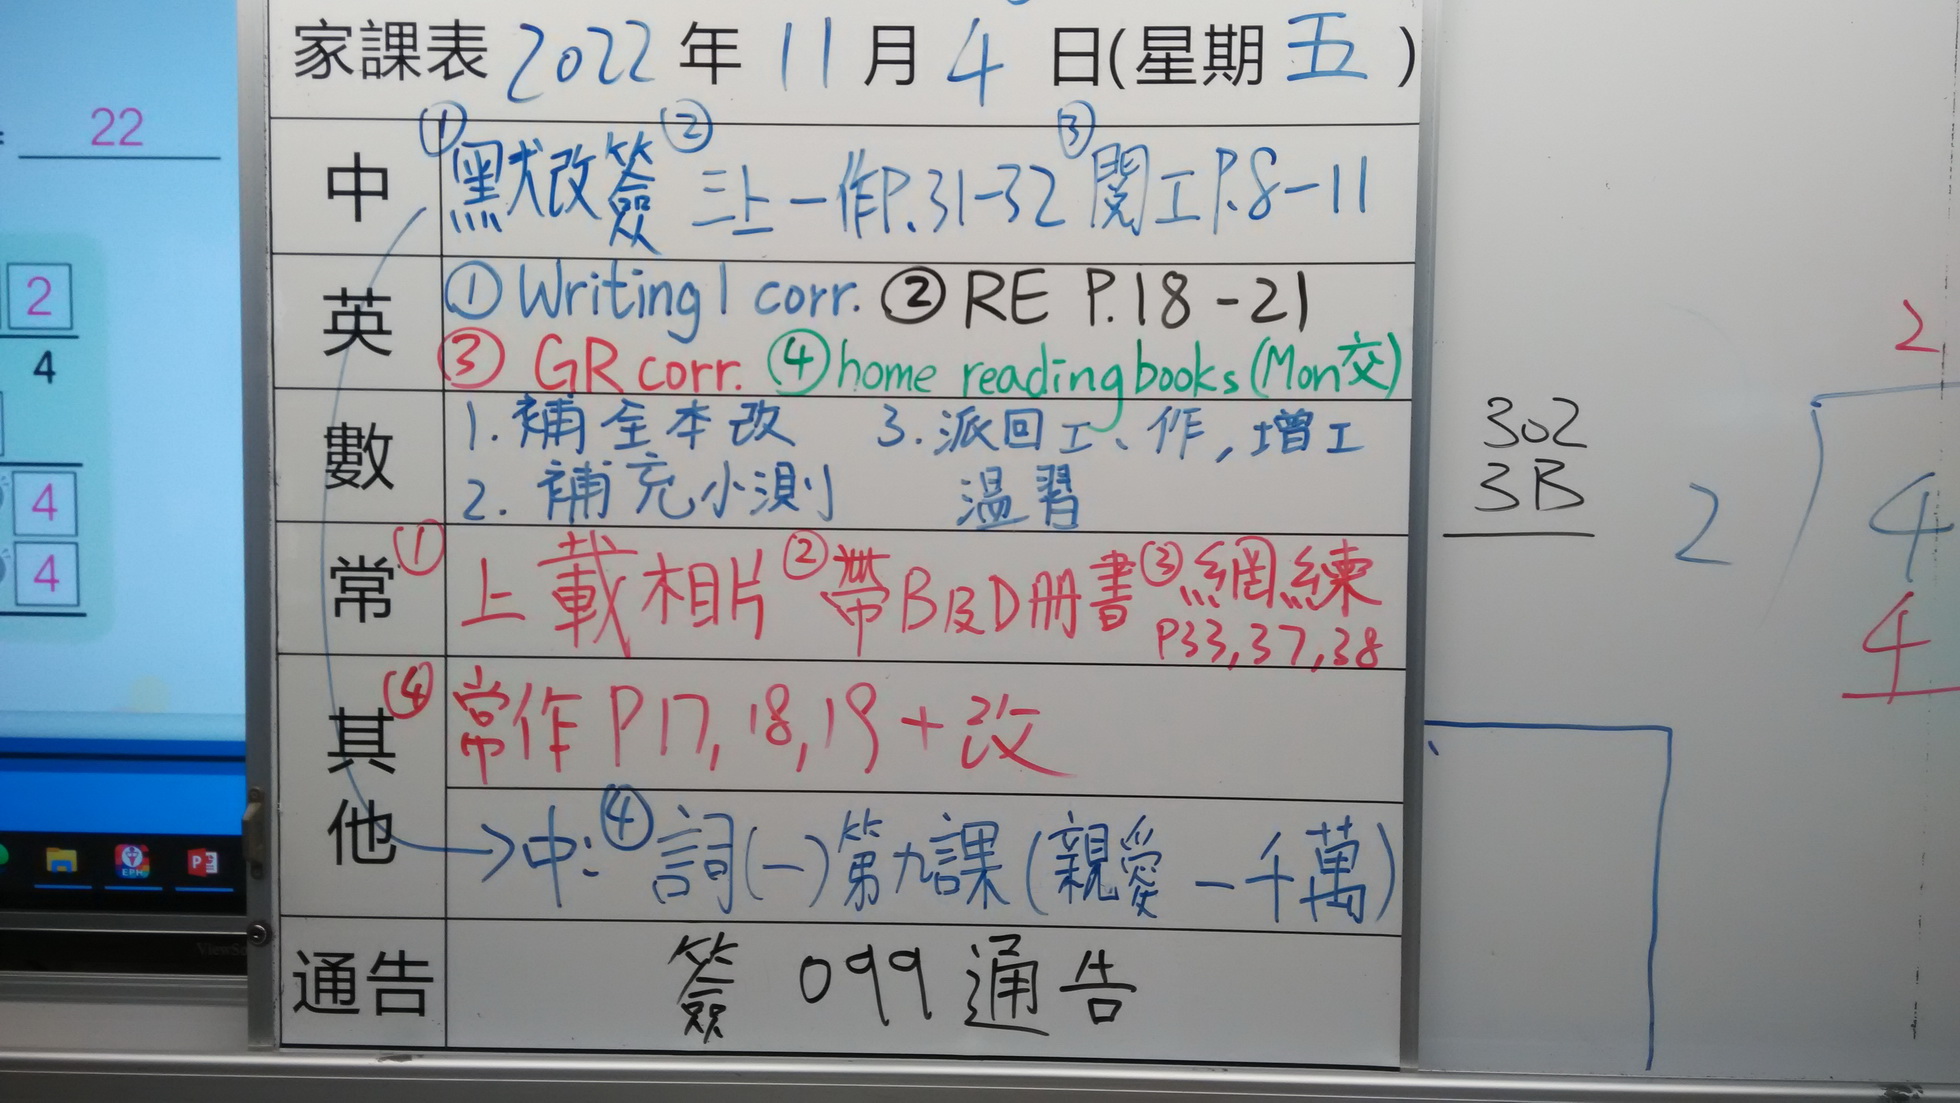 家課表 2022 年 11 月 4 日(星期 五 )
中 ①默改簽 ②三上一作P.31-32 ③閱工P.8-11
英 ①Writing 1 corr. ② RE P.18-21
③ GR corr. ④home reading books (Mon交)
數 1. 補全本改 3. 派回工、作,增工
2. 補充小測 溫習
常 ①上載相片 ②帶B及D冊書 ③網練
P33,37,38
其他 ④常作 P17, 18, 19 + 改
→中: ④詞(一)第九課(親愛 - 千萬)
通告 簽 099 通告
22
2
4
4
4
EPH
ViewS
302
3B
2
2
4
4